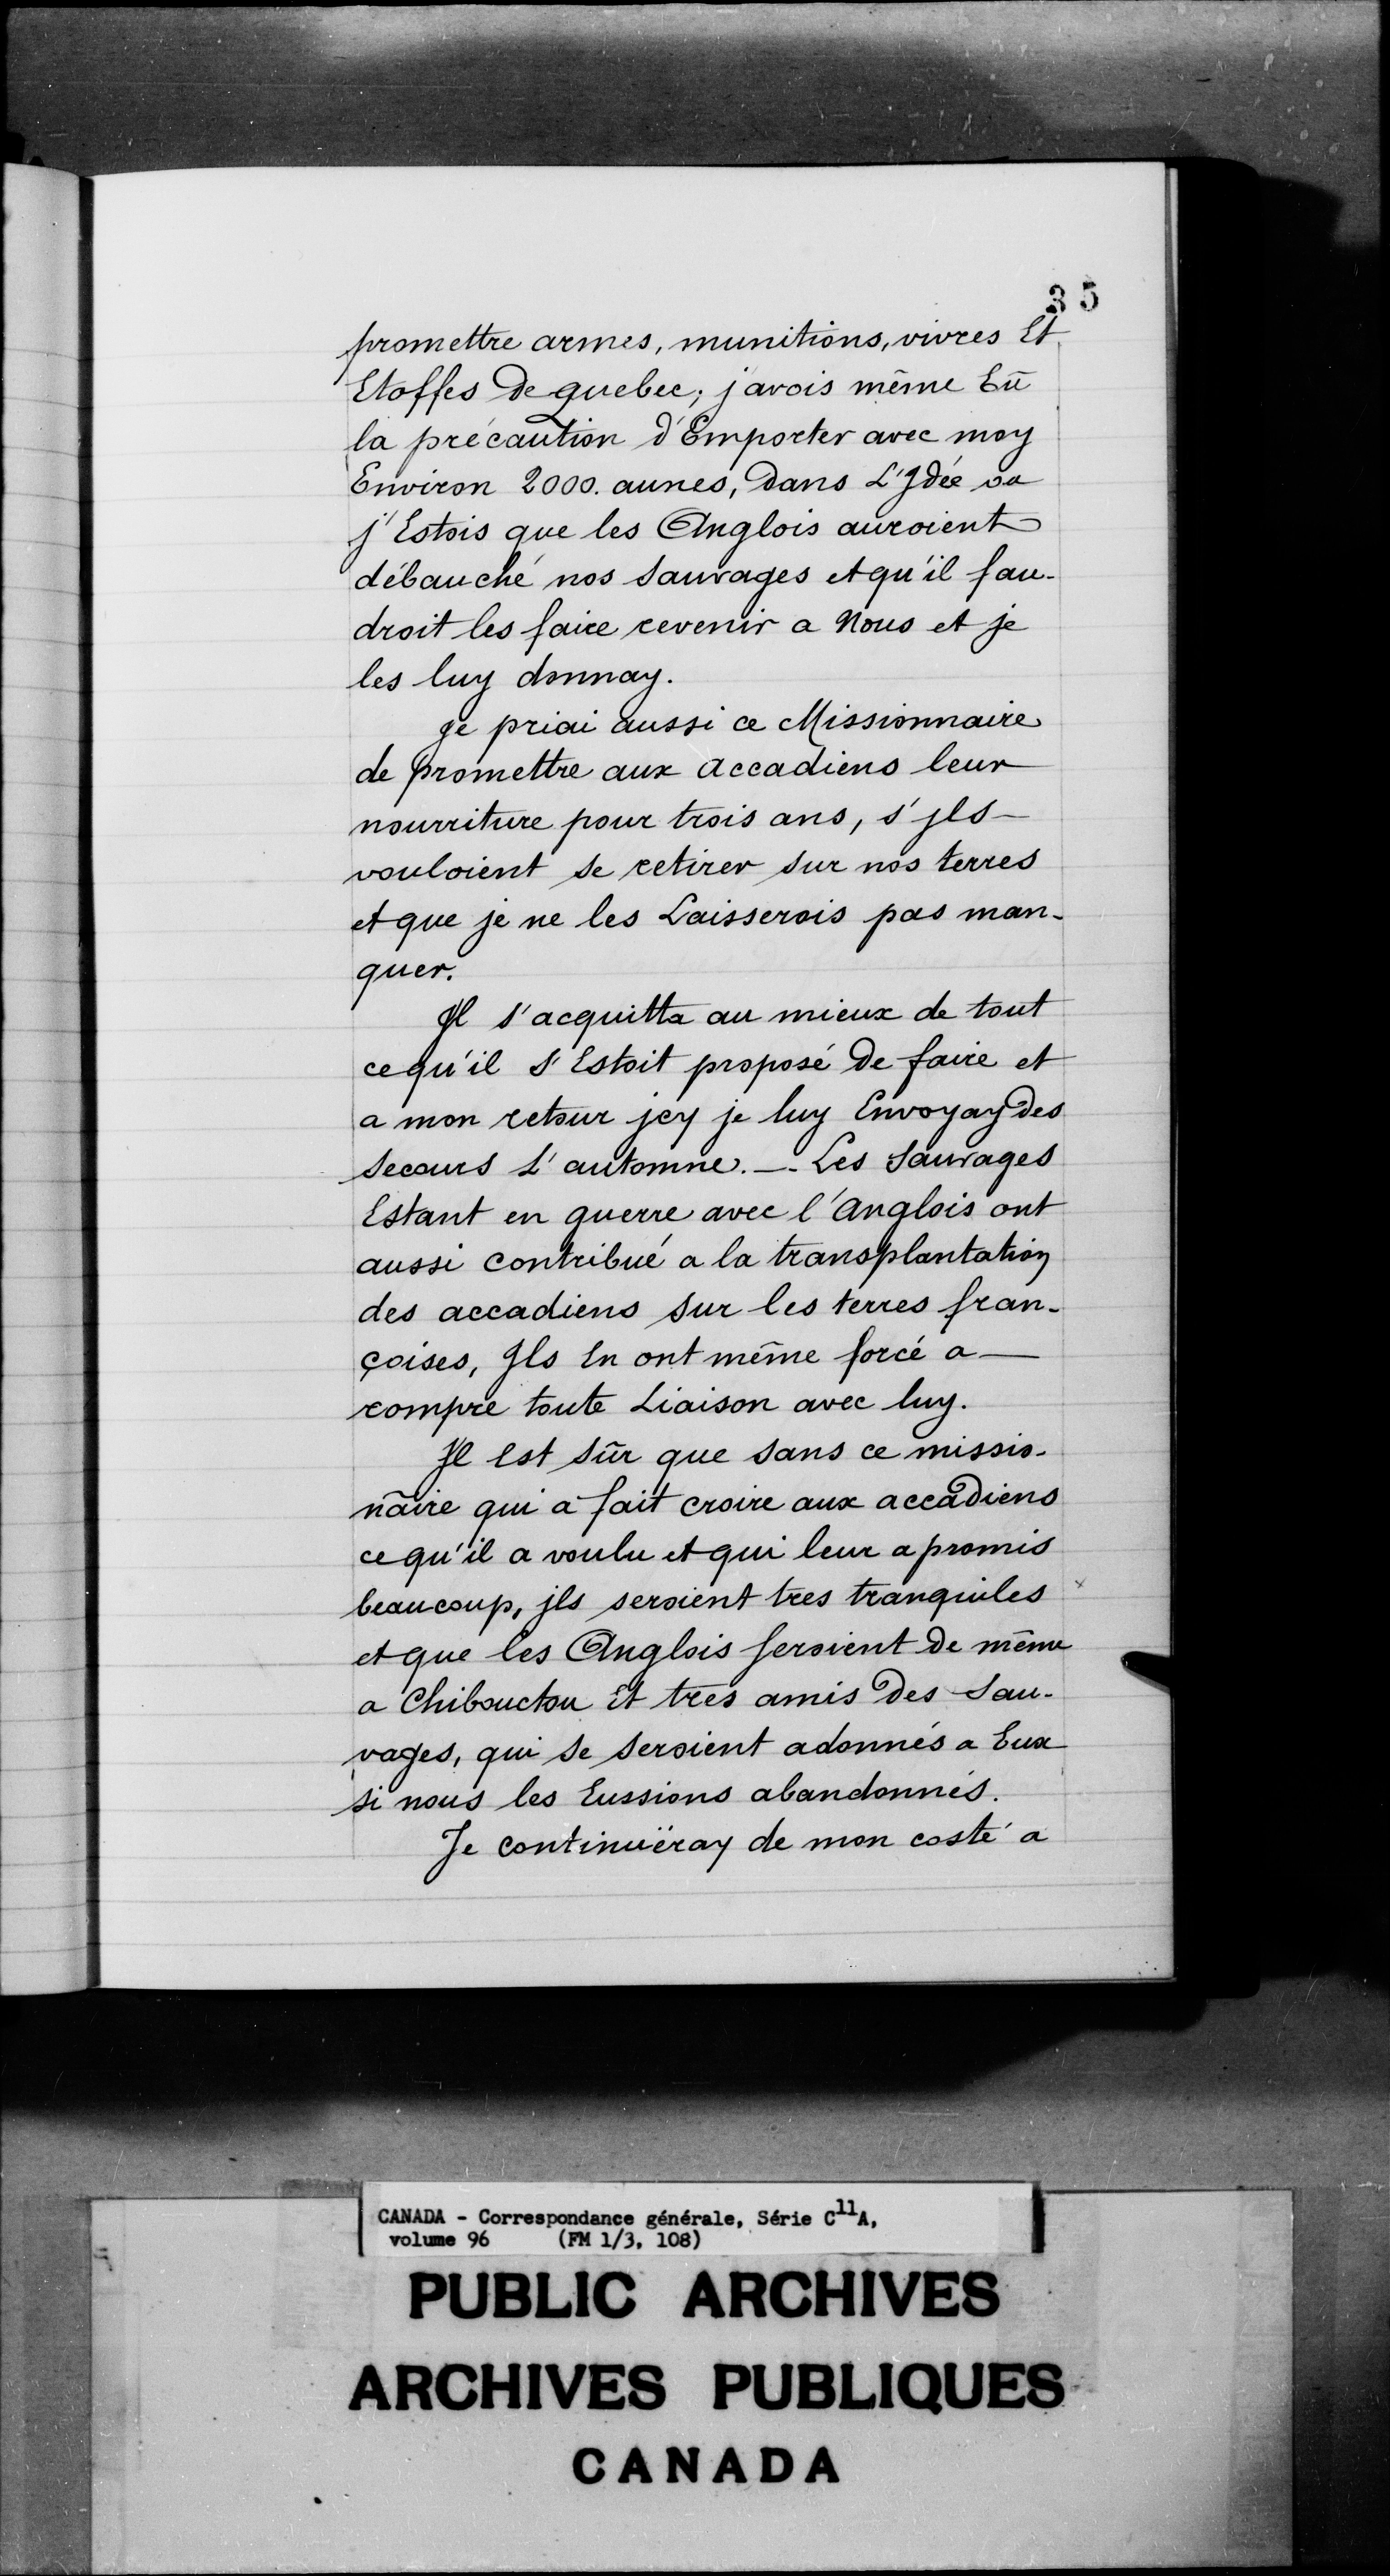 35
promettre armes, munitions, vivres Et
Etoffes de quebec; j'avois même Eū
la précaution d'Emporter avec moy
Environ 2000. aunes, dans L'Jdée ou
j'Estois que les Anglois auroient
débauché nos sauvages et qu'il fau-
droit les faire revenir a Nous et je
les luy donnay.
je priai aussi ce Missionnaire
de promettre aux accadiens leur
nourriture pour trois ans, s'jls
vouloient se retirer sur nos terres
et que je ne les Laisserois pas man-
quer.
Jl s'acquitta au mieux de tout
ce qu'il s'Estoit proposé de faire et
a mon retour jcy je luy Envoyay des
secours L'automne. — Les sauvages
Estant en guerre avec l'anglois ont
aussi contribué a la transplantation
des accadiens sur les terres fran-
çoises, Jls En ont même forcé a —
rompre toute Liaison avec luy.
Jl Est sûr que sans ce missio-
nāire qui a fait croire aux accadiens
ce qu'il a voulu et qui leur a promis
beaucoup, jls seroient tres tranquiles x
et que les Anglois seroient de même
a Chibouctou Et tres amis des Sau-
vages, qui se seroient adonnés a Eux
si nous les Eussions abandonnés.
Je continuëray de mon costé a
CANADA - Correspondance générale, Série C11A,
volume 96 (FM 1/3, 108)
PUBLIC ARCHIVES
ARCHIVES PUBLIQUES
CANADA